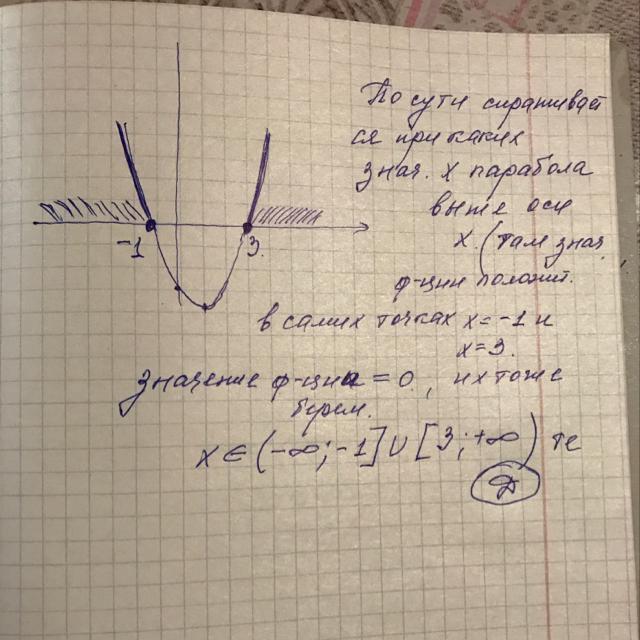 По сути спрашивает
ся при каких
знач. x парабола
выше оси
x. (там знач
ф-ции положит.
-1
3.
в самих точках x = -1 и
x = 3.
значение ф-ции = 0, их тоже
берем.
x ∈ (-∞; -1] ∪ [3; +∞) те